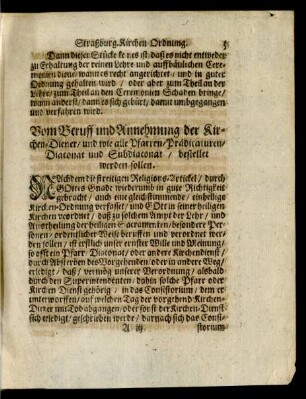 Straßburg. Kirchen-Ordnung. 5
Dann dieser Stücke keines ist / daß es nicht entweder
zu Erhaltung der reinen Lehre und aufferbäulichen Cere-
monien diene / wann es recht angerichtet / und in guter
Ordnung gehalten wird / oder aber zum Theil an der
Lehre / zum Theil an den Ceremonien Schaden bringe /
wann anderst / dann es sich gebürt / damit umbgegangen
und verfahren wird.
Vom Beruff und Annehmung der Kir-
chen-Diener / und wie alle Pfarren / Prädicaturen /
Diaconat und Subdiaconat / bestellet
werden sollen.
NAchdem die streitigen Religions-Artickel / durch
GOttes Gnade wiederumb in gute Richtigkeit
gebracht / auch eine gleichstimmende / einhellige
Kirchen-Ordnung verfasset / und GOtt in seiner heiligen
Kirchen verordnet / daß zu solchem Ampt der Lehr / und
Austheilung der heiligen Sacramenten / besondere Perso-
nen / ordentlicher Weise beruffen und verordnet wer-
den sollen / ist erstlich unser ernster Wille und Meinung /
so offt ein Pfarr / Diaconat / oder andere Kirchendienst /
durch Absterben des Vorgehenden / oder in andere Wege
erledigt / daß / vermög unserer Verordnung / alsbald
durch den Superintendenten / dahin solche Pfarr oder
Kirchen Dienst gehörig / in das Consistorium / dem er
unterworffen / auf welchen Tag der vorgehend Kirchen-
Diener mit Tod abgangen / oder sonst der Kirchen-Dienst
sich erledigt / geschrieben werde / darnach sich das Consi-
A iij storium